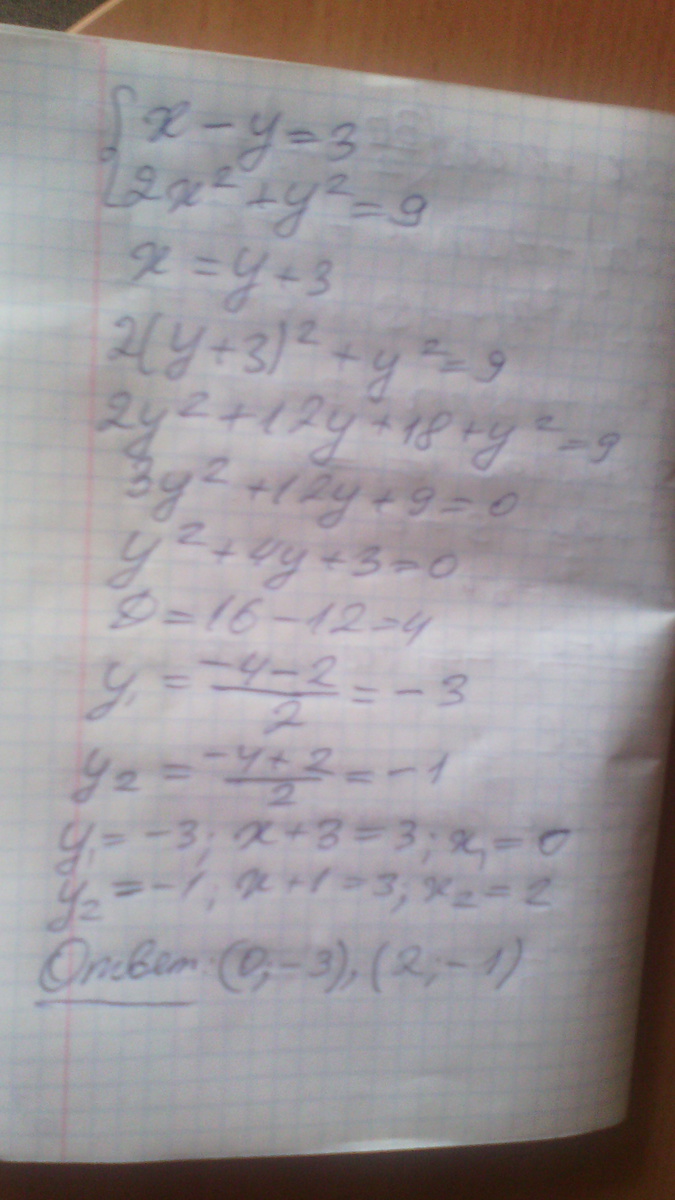 { x - y = 3
2x² + y² = 9
x = y + 3
2(y + 3)² + y² = 9
2y² + 12y + 18 + y² = 9
3y² + 12y + 9 = 0
y² + 4y + 3 = 0
D = 16 - 12 = 4
y₁ = (-4 - 2)/2 = -3
y₂ = (-4 + 2)/2 = -1
y₁ = -3; x + 3 = 3; x₁ = 0
y₂ = -1; x + 1 = 3; x₂ = 2
Ответ: (0; -3), (2; -1)